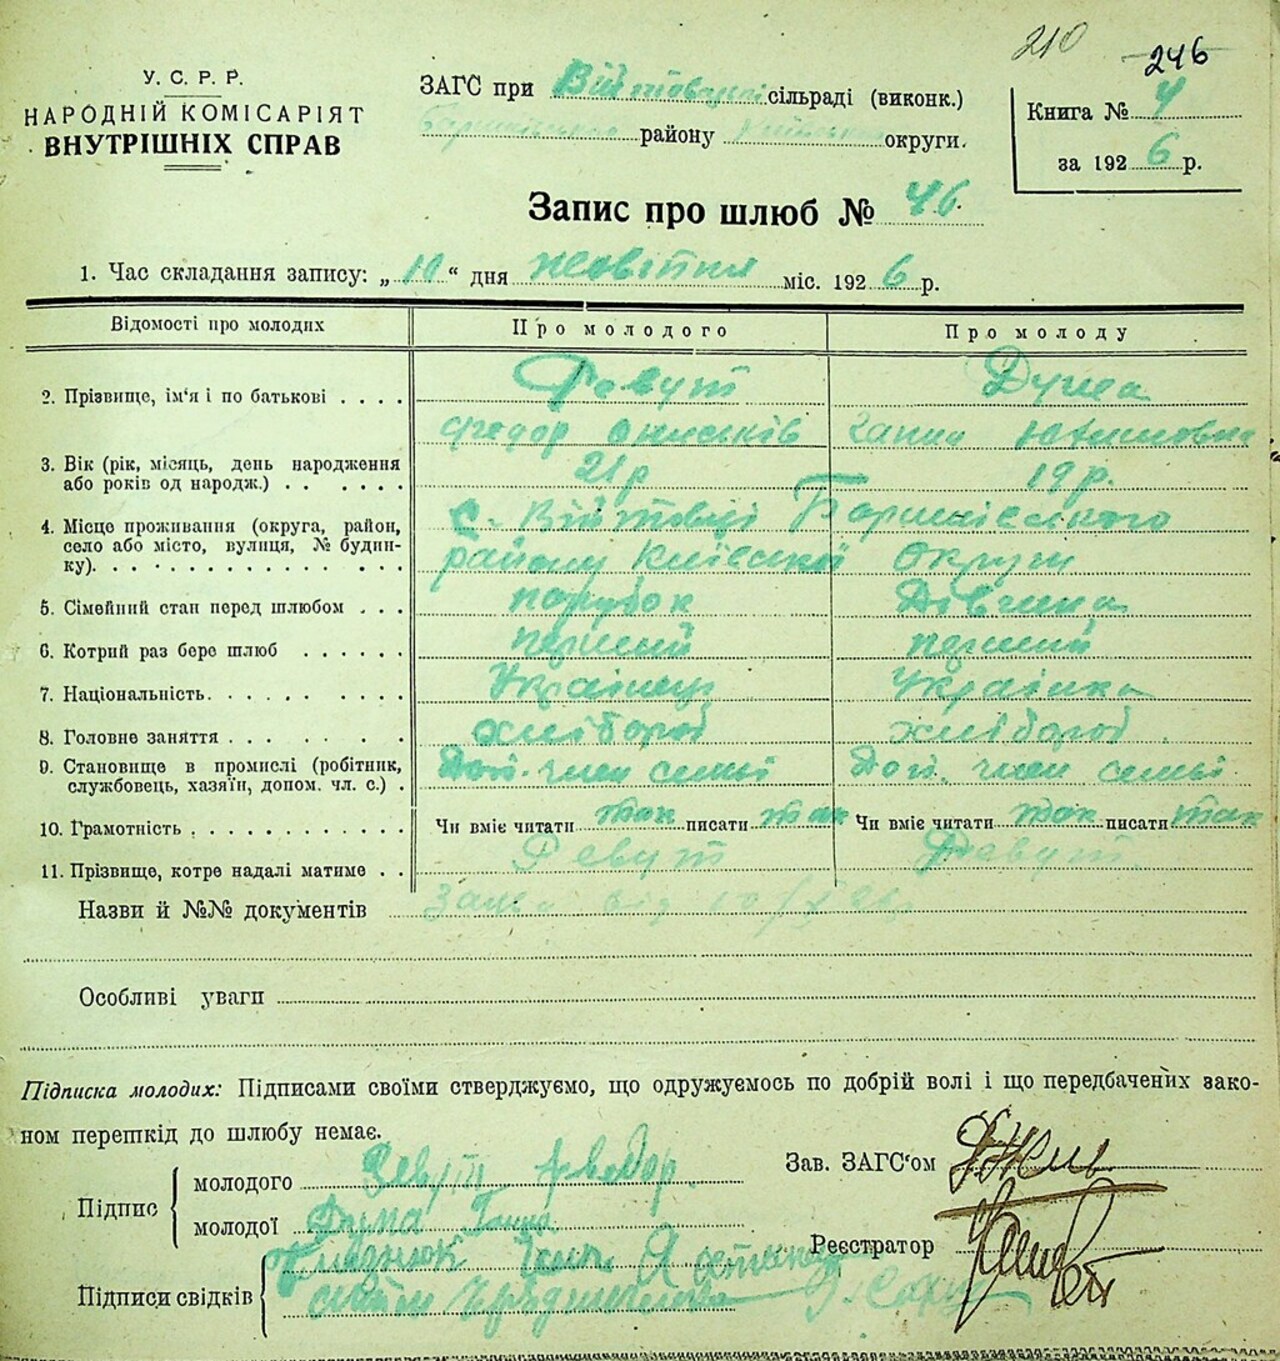 210
246
У. С. Р. Р.
НАРОДНІЙ КОМІСАРІЯТ
ВНУТРІШНІХ СПРАВ
ЗАГС при Війтовецкі сільраді (виконк.)
Баришівського району Київської округи.
Книга № 4
за 1926 р.
Запис про шлюб № 46.
1. Час складання запису: „10“ дня жовтня міс. 1926 р.
Відомості про молодих Про молодого Про молоду
2. Прізвище, ім'я і по батькові Ревут Дума
федор Ганна
3. Вік (рік, місяць, день народження або років од народж.) 21р 19р.
4. Місце проживання (округа, район, село або місто, вулиця, № будинку) с. Війтовці Баришівського
району Київської Округи
5. Сімейний стан перед шлюбом парубок Дівчина
6. Котрий раз бере шлюб перший перший
7. Національність Українець Українка
8. Головне заняття хлібороб хлібороб
9. Становище в промислі (робітник, службовець, хазяїн, допом. чл. с.) Доп. член семьї Доп. член семьї
10. Грамотність Чи вміє читати так писати так Чи вміє читати так писати так
11. Прізвище, котре надалі матиме Ревут Ревут
Назви й №№ документів Заява від 10/X 26р
Особливі уваги
Підписка молодих: Підписами своїми стверджуємо, що одружуємось по добрій волі і що передбачених зако-
ном перешкід до шлюбу немає.
Підпис молодого Ревут Федор
молодої Дума Ганна
Підписи свідків
Зав. ЗАГС'ом
Реєстратор